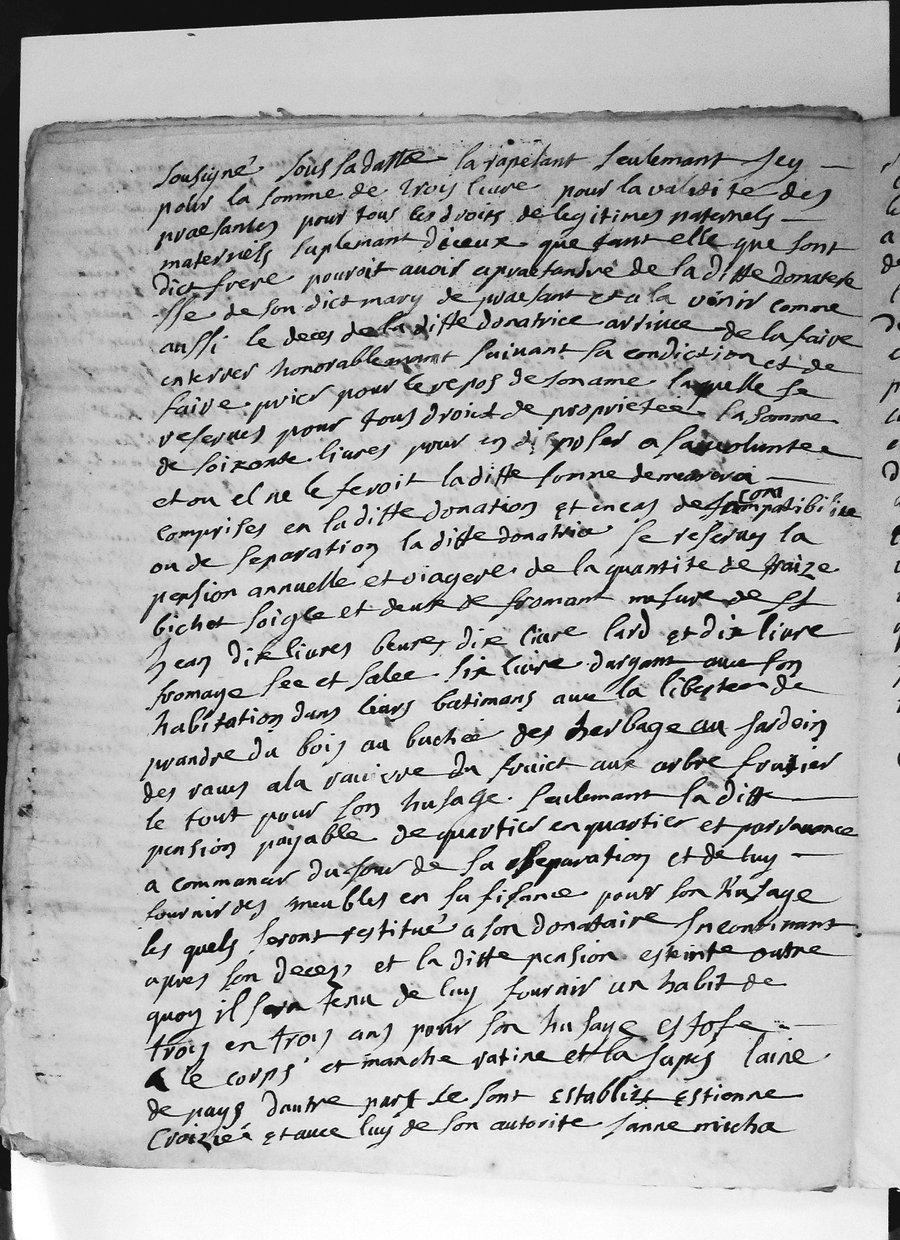 sousigné sous la datte la rapelant seulemant icy
pour la somme de troys livre pour la validité des
praesantes pour tous les droits de legitimes paternels
maternels suplemant diceux que tant elle que sont
dict frere pouroit avoir a praetandre de laditte donateresse
sse de son dict mary de praesant et a la venir comme
aussi le deces de laditte donatrice arrivee de la faire
enterrer honorablemant suivant sa condiction et de
faire prier pour le repos de son ame laquelle se
reserves pour tous droict de proprietee la somme
de soixante livres pour en disposer a sa voluntee
et ou el ne le feroit laditte somme demeurera
comprises en laditte donation et en cas de incompatibilite
ou de separation laditte donatrice se reserves la
pension annuelle et viagere de la quantite de traize
bichet soigle et deux de fromant mesure de St
Jean dix livres beure, dix livre lard et dix livre
fromage sec et salee six livre dargant avec son
habitation dans leurs batimans avec la libertee de
prandre du bois au buchée des herbage au jardein
des raves a la raviere du fruict aux arbre fruitier
le tout pour son husage seulemant laditte
pension payable de quartier en quartier et par avance
a commancer du jour de la separation et de luy
fournir des meubles en sufisance pour son husage
les quels seront restitué a son donataire incontinant
apres son deces, et laditte pension esteinte outre
quoy il sera tenu de luy fournir un habit de
trois en trois ans pour son husage estofe
le corps et manche ratine et la jupes laine
de pays dautre part se sont establist Estienne
Croiziéé et avec luy de son autorite janne micha